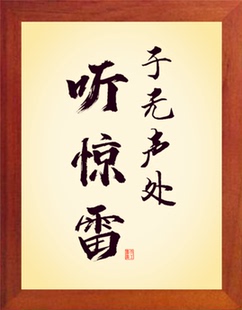 于无声处
听惊雷